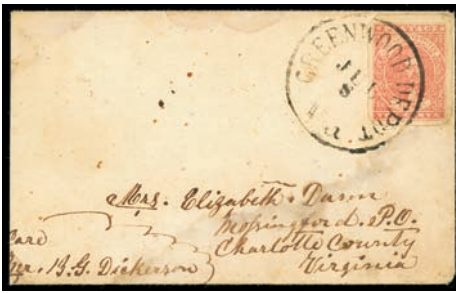 GREENWOOD DEPOT. Va
JUL
Mrs. Elizabeth Dunn
Mossingford. P.O.
Charlotte County
Virginia
Care
B. G. Dickerson